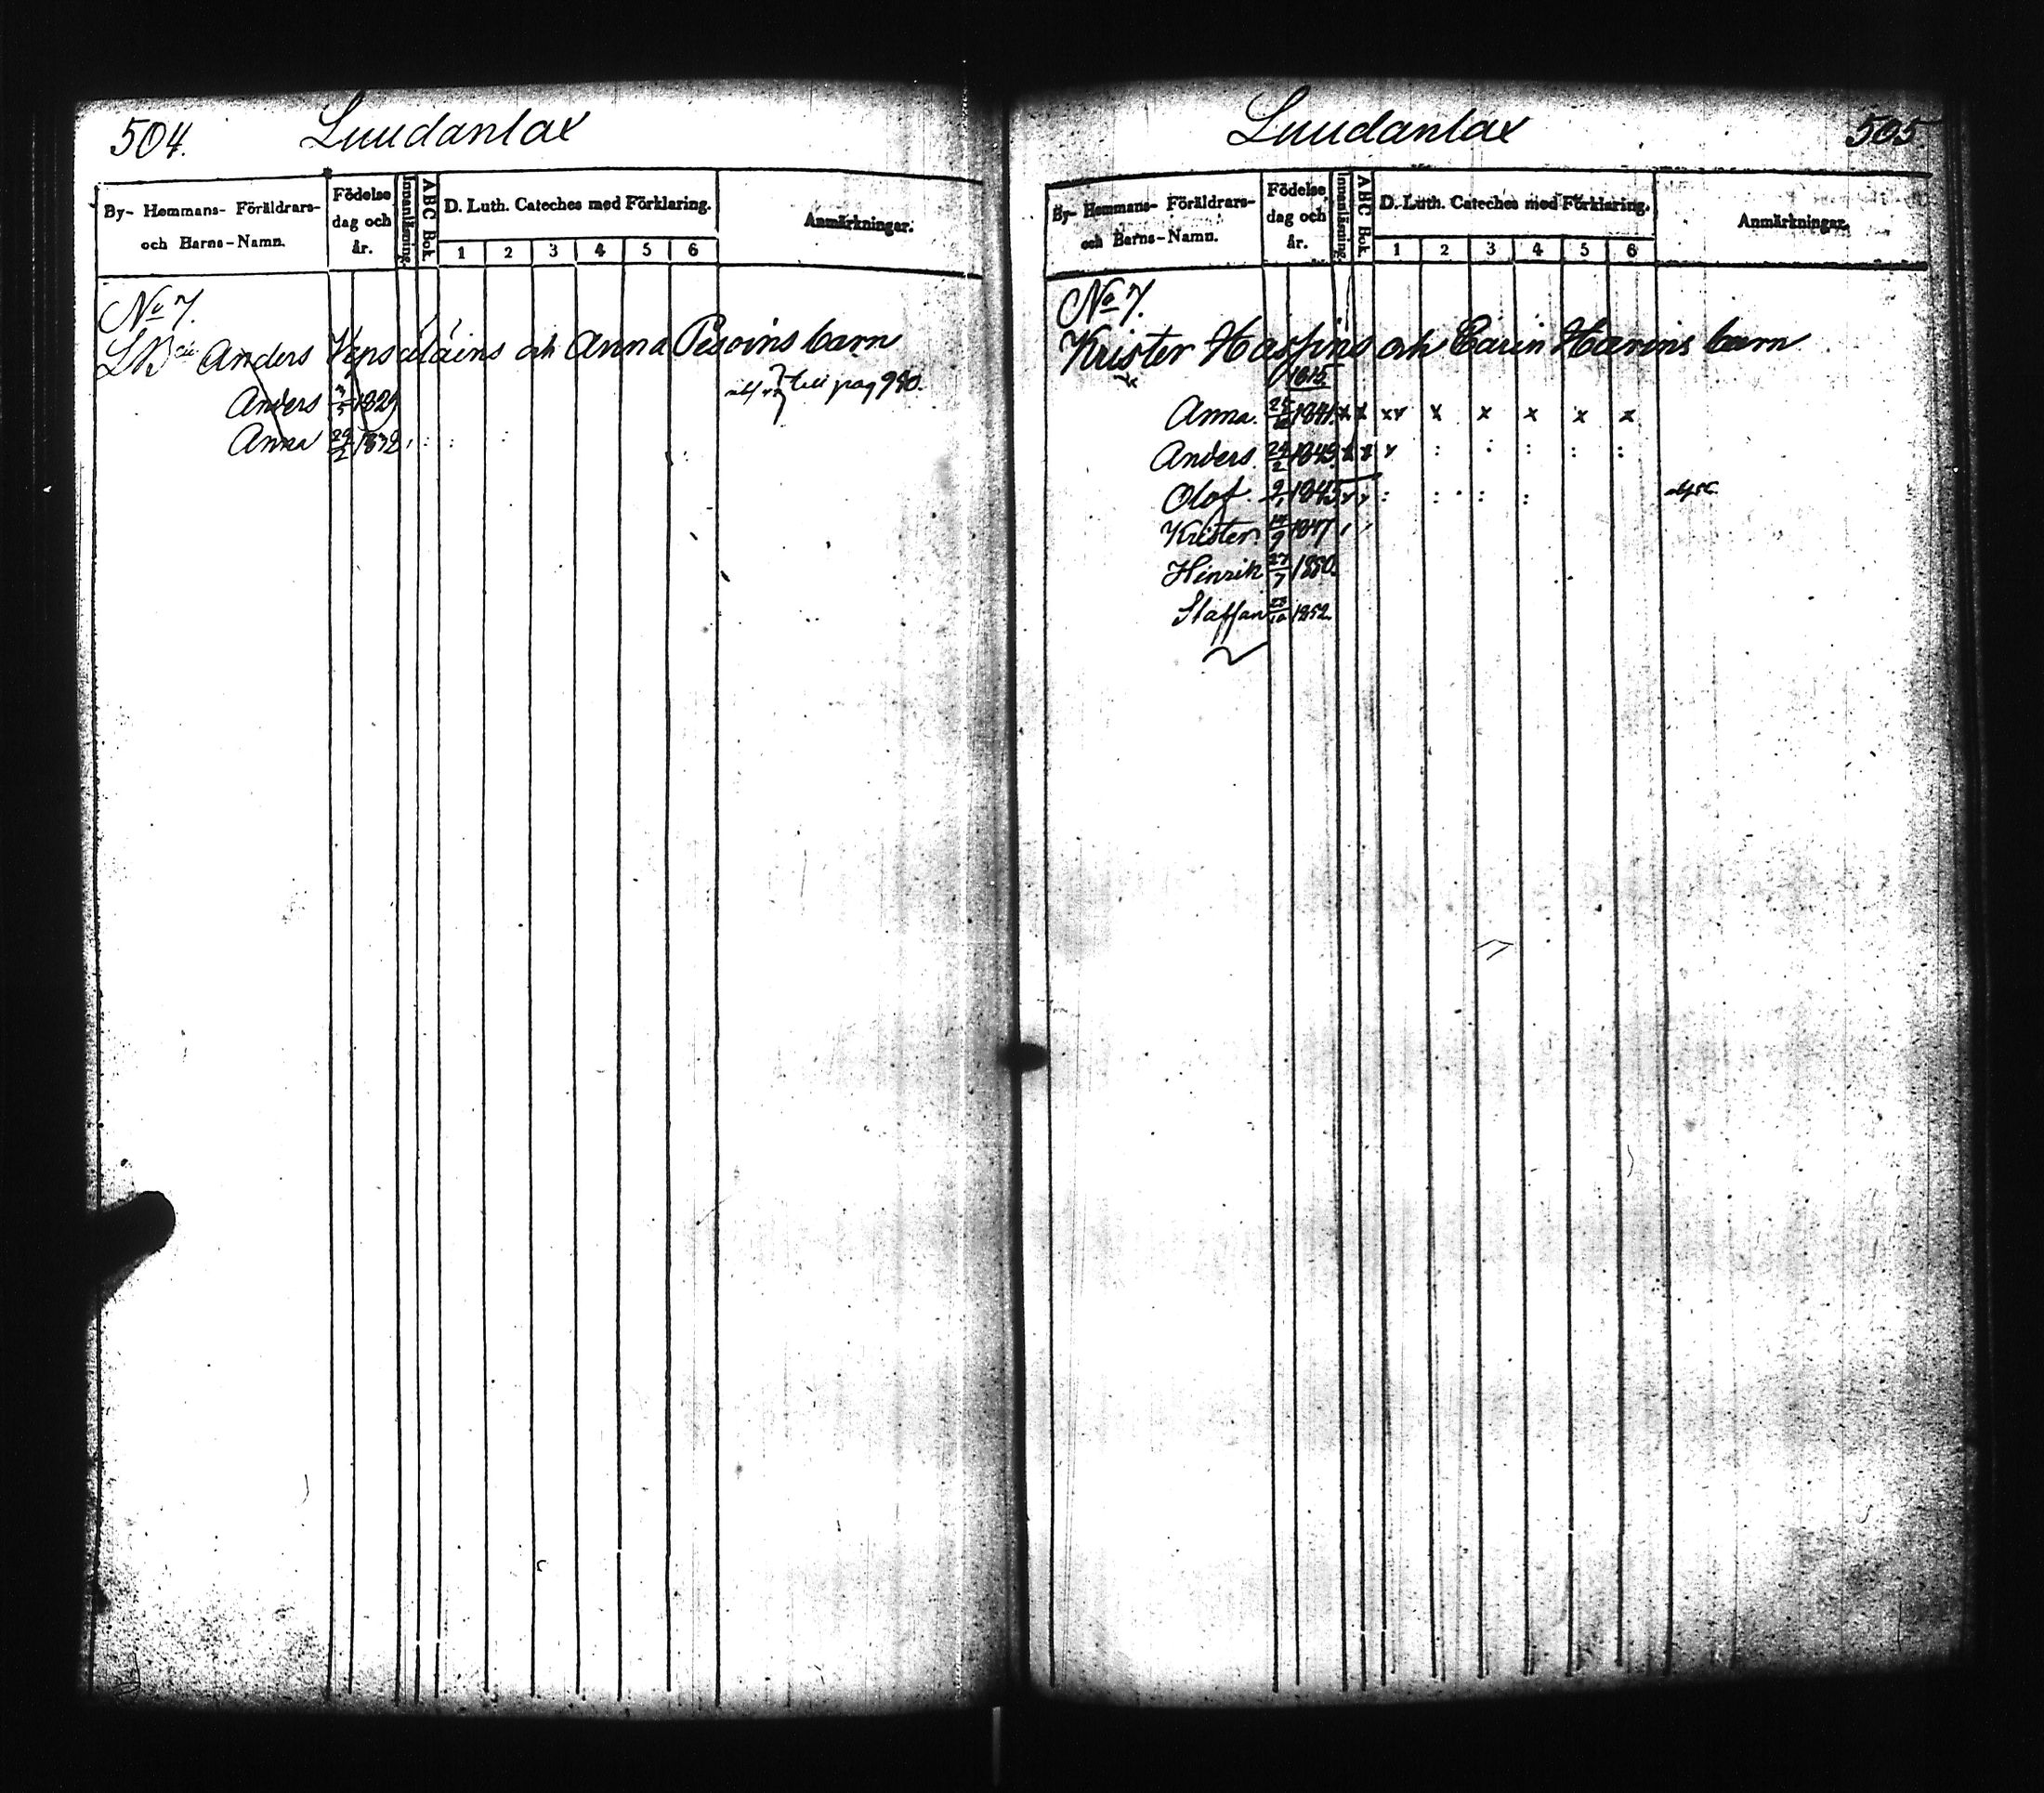 504. Luudanlax
By- Hemmans- Föräldrars- och Barns-Namn.
Födelse dag och år.
Innanläsning.
ABC Bok.
D. Luth. Cateches med Förklaring.
1 2 3 4 5 6
Anmärkningar.
No 7.
Anders Vepsäläins och Anna Pesoins barn
Anders 1829 till pag 990.
Anna 29/2 1832
Luudanlax 505
By- Hemmans- Föräldrars- och Barns-Namn.
Födelse dag och år.
Innanläsning.
ABC Bok.
D. Luth. Cateches med Förklaring.
1 2 3 4 5 6
Anmärkningar.
No 7.
Krister Hassins och Carin Havins barn
1815
Anna. 1841 x x xx x x x x x
Anders. 24/2 1843 x x x : : : : :
Olof. 9/1 1845 : : : :
Krister. 1847
Hinrik 27/7 1850.
Staffan 1852.